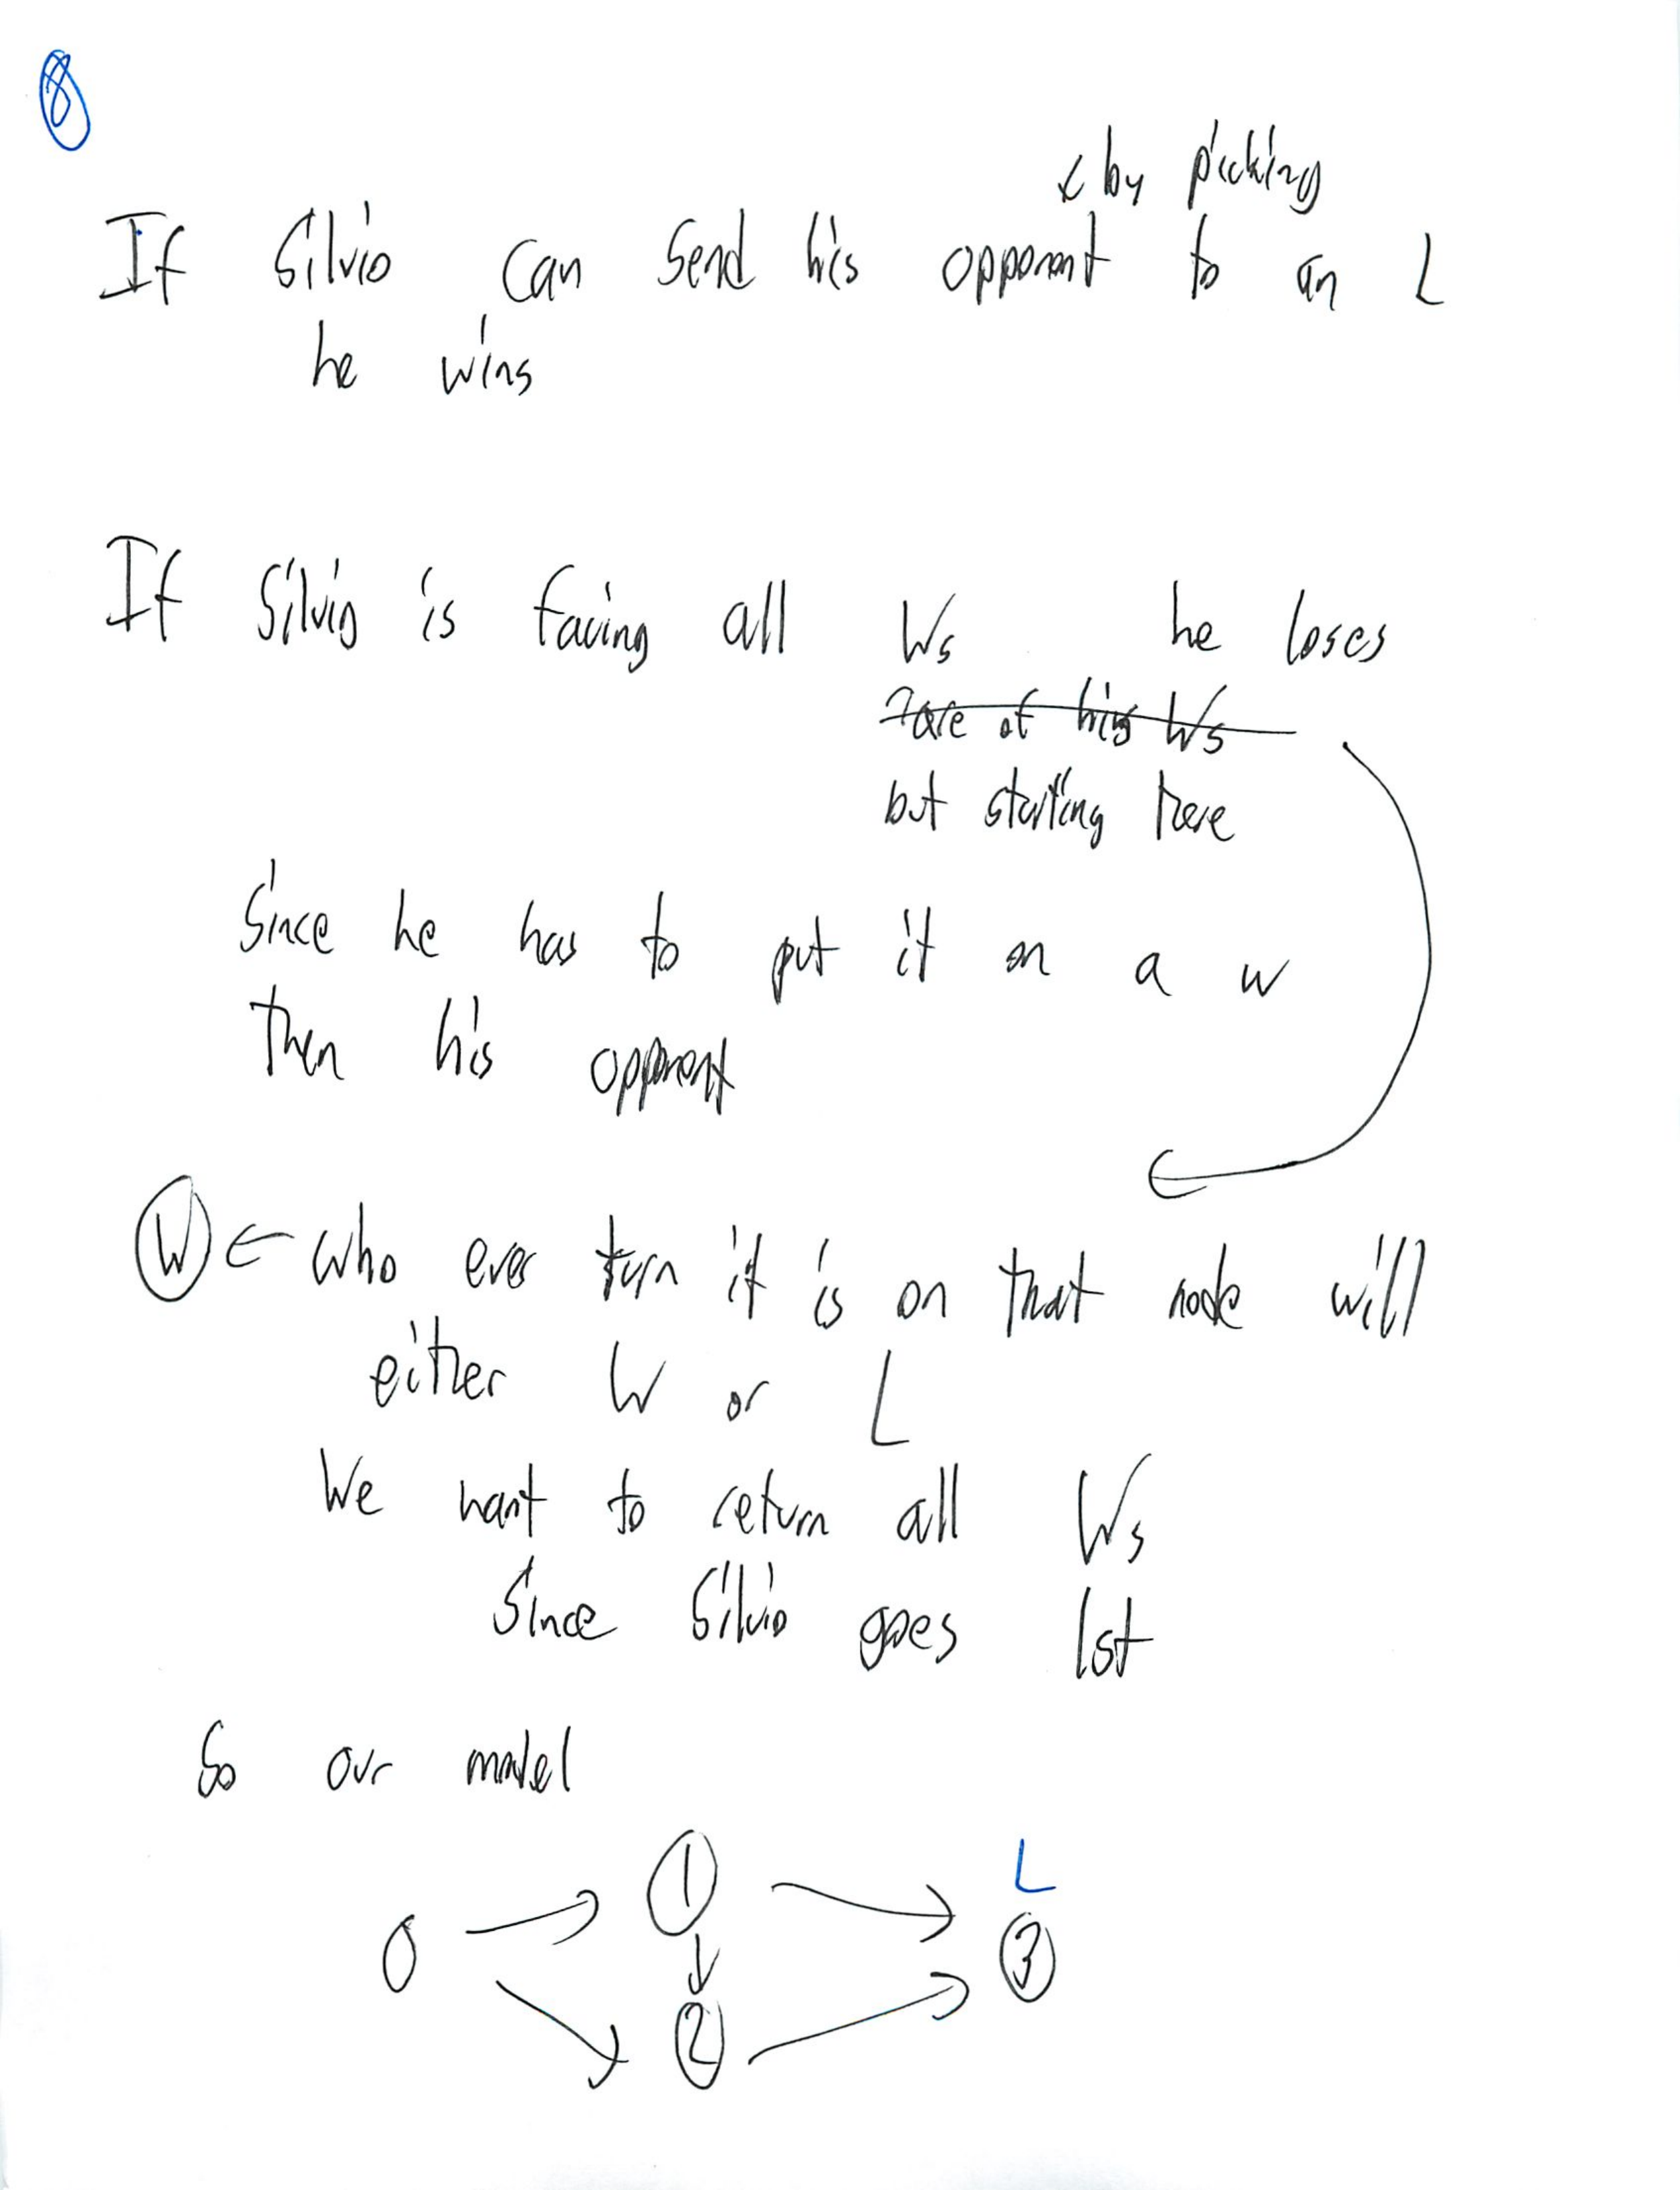 8
← by picking
If Silvio can send his opponent to an L
he wins
If Silvio is facing all Ws he loses
of his Ws
but starting here
Since he has to put it on a w
then his opponent
W ← who ever turn it is on that node will
either W or L
We want to return all Ws
Since Silvio goes 1st
So our model
L
1
0
3
2